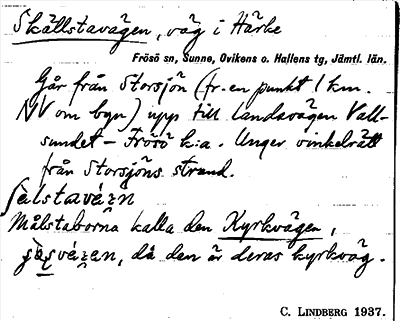 Skällstavägen, väg i Härke
Frösö sn, Sunne, Ovikens o. Hallens tg, Jämtl. län.
Går från Storsjön (fr. en punkt 1 km.
NV om byn) upp till landsvägen Vall-
sundet – Frösö k:a. Ungef. vinkelrätt
från Storsjöns strand.
Målstaborna kalla den Kyrkvägen,
då den är deras kyrkväg.
C. LINDBERG 1937.